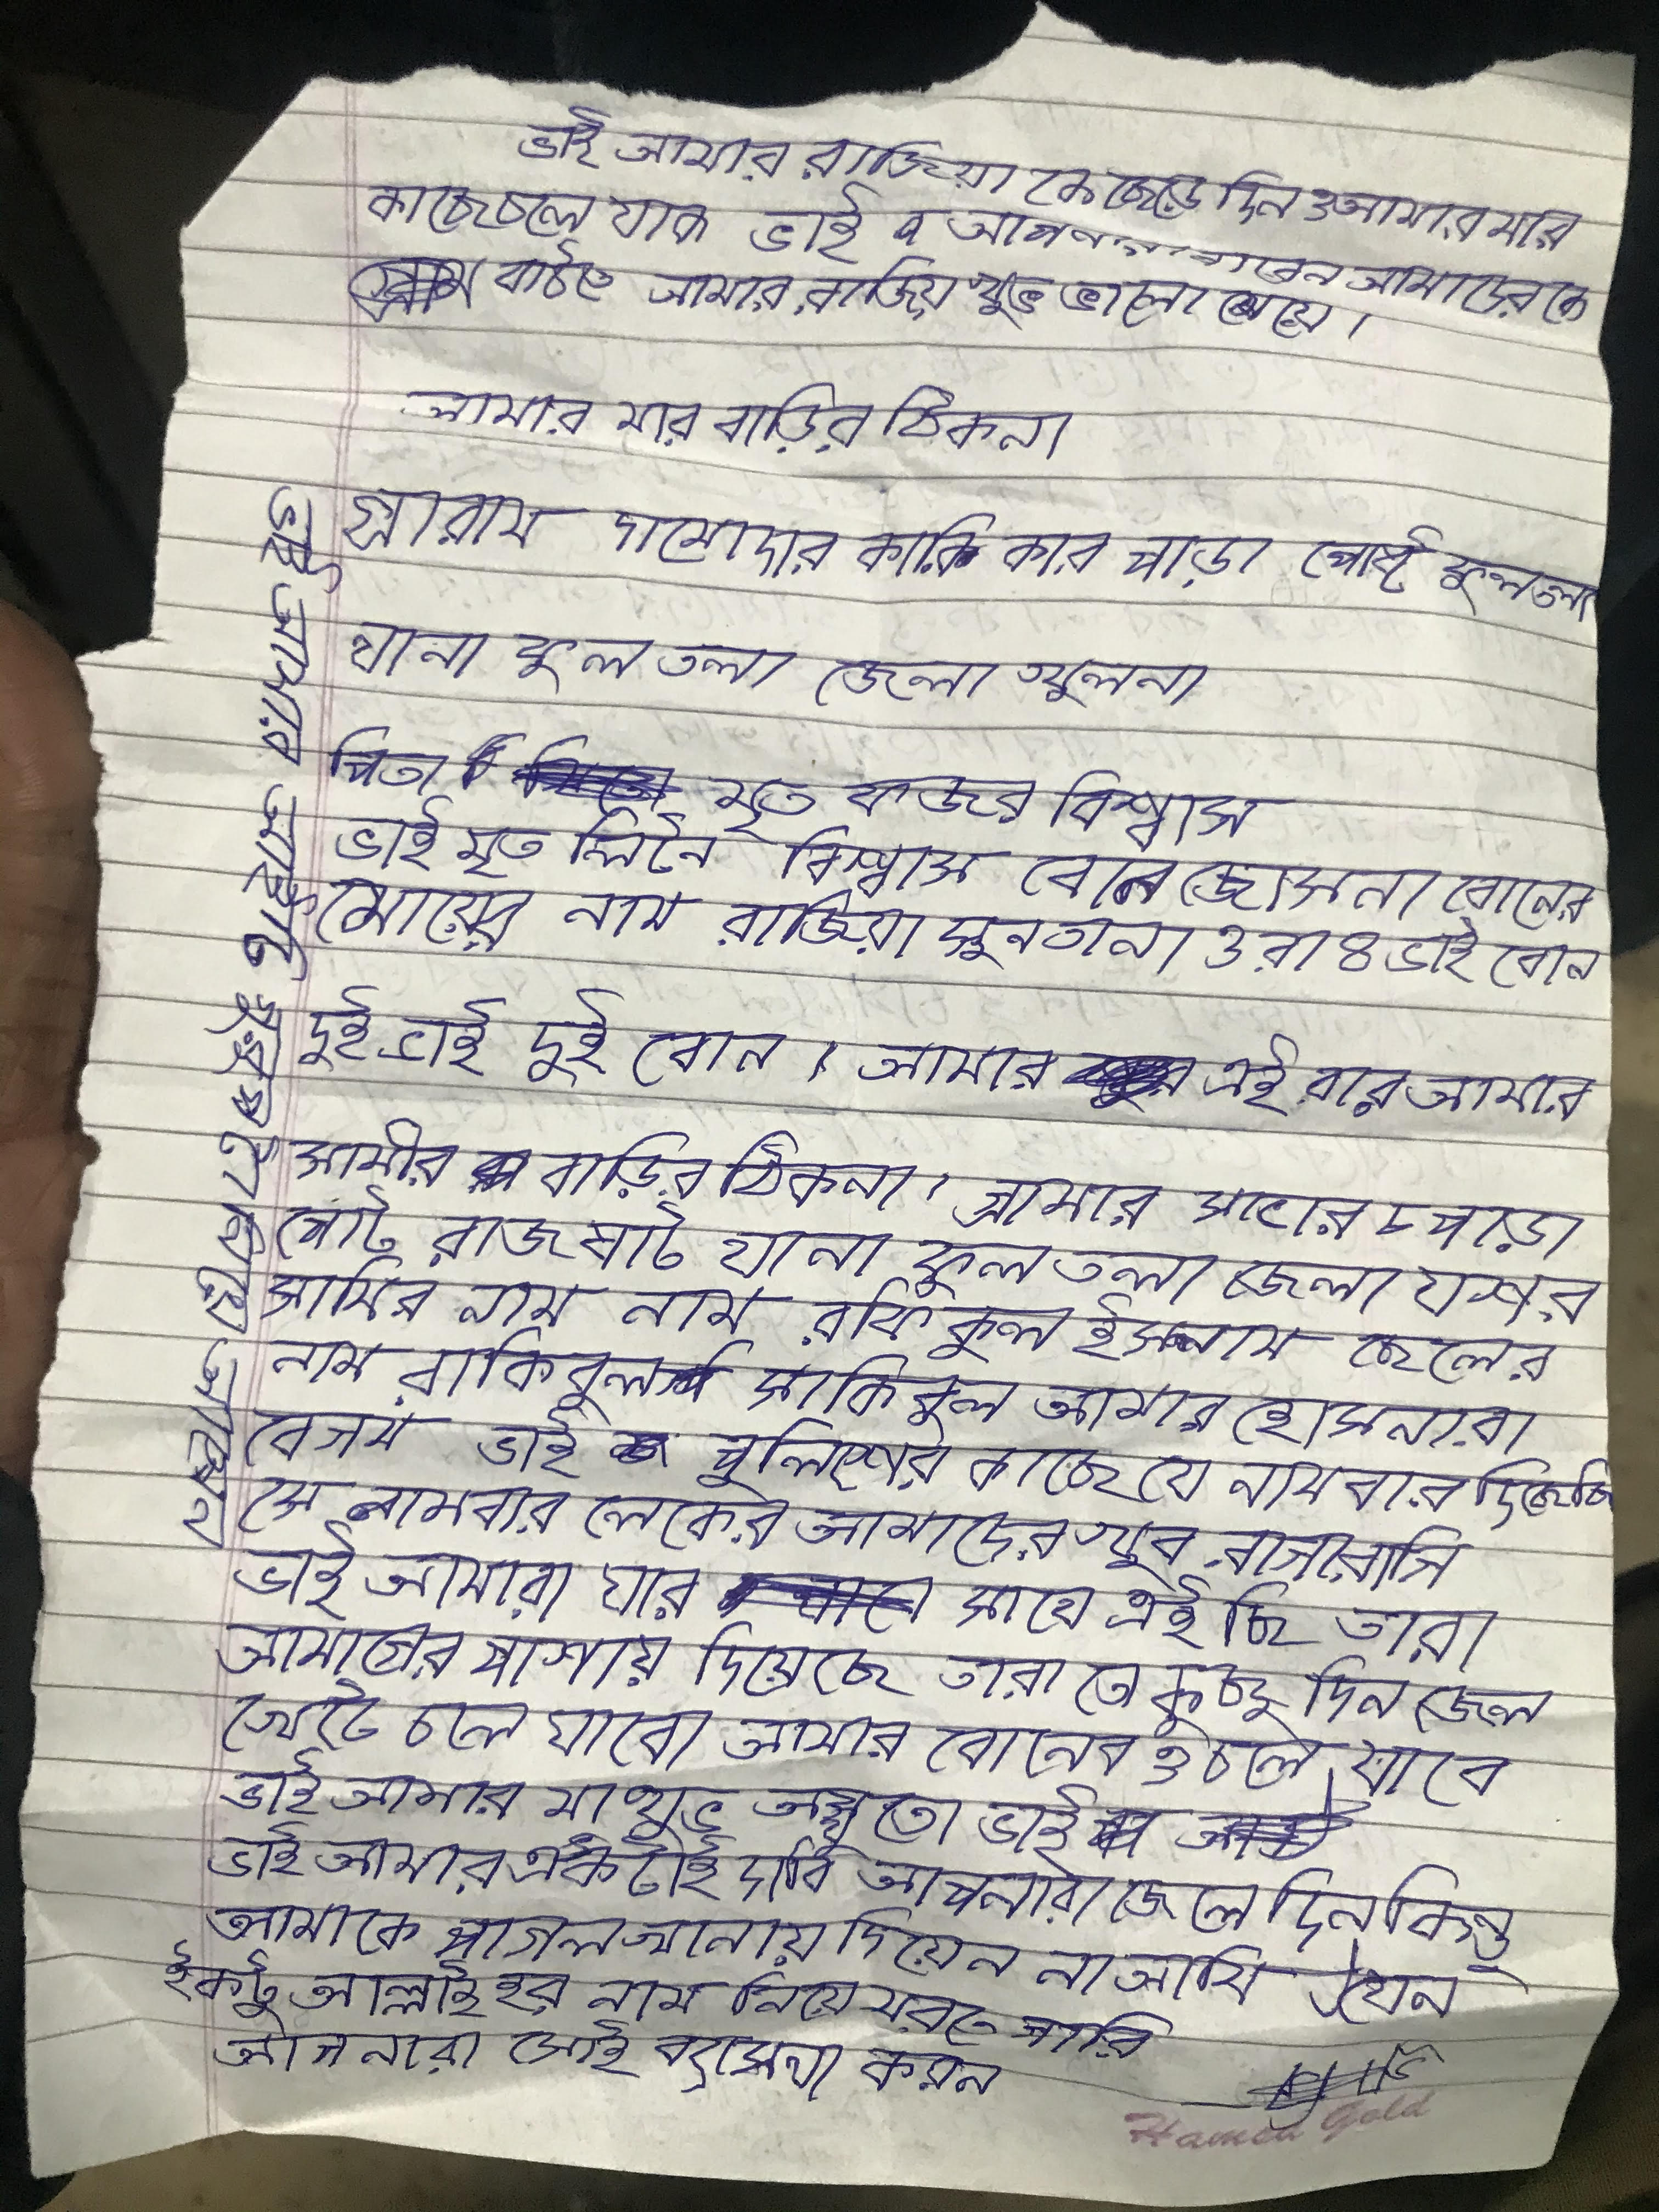 ভাই আমার রাজিয়া কে ছেড়ে দিন ও আমার মার
কাছে চলে যাক ভাই আমাদের কে
বাচঁও আমার রাজিয় খুভ ভালো মেয়ে।
আমার মার বাড়ির ঠিকনা
গ্রারাম দামোদার কারিকার পাড়া পোষ্ট ফুলতলা
থানা ফুলতলা জেলা খুলনা
পিতা মৃত ফজর বিশ্বাস
ভাই মৃত লিটন বিশ্বাস বোন জোসনা বোনের
মোয়ের নাম রাজিয়া সুলতানা ওরা ৪ ভাই বোন
দুই ভাই দুই বোন। আমার এই বার আমার
সামীর বাড়ির ঠিকনা। গ্রামার পাড়া
পোট রাজঘাট থানা ফুলতলা জেলা যশর
সামির নাম নাম রফিকুল ইসলাম ছেলের
নাম রাকিবুল সাকিবুল আমার হোসনারা
বেগম ভাই পুলিশের কাছে যে নামবার দিছেছি
সে নামবার লেকের আমাদের খুব রাগারাগি
ভাই আমারা যার সাথে এইছি তারা
আমাগের পাশায় দিয়েছে তারা তো কুচু দিন জেল
খেটে চলে যাবো আমার বোনেব ও চলে যাবে
ভাই আমার মা খুভ অসু তো ভাই
ভাই আমার একটাই দাবি আপনারা জেলে দিন কিন্তু
আমাকে পাগল খানায় দিয়েন না আমি যেন
ইকটু আল্লাইহর নাম নিয়ে মরতে পারি
আপনারা সেই ব্যাসথা করন
ভাই আমার আইডি
Hamea Gold